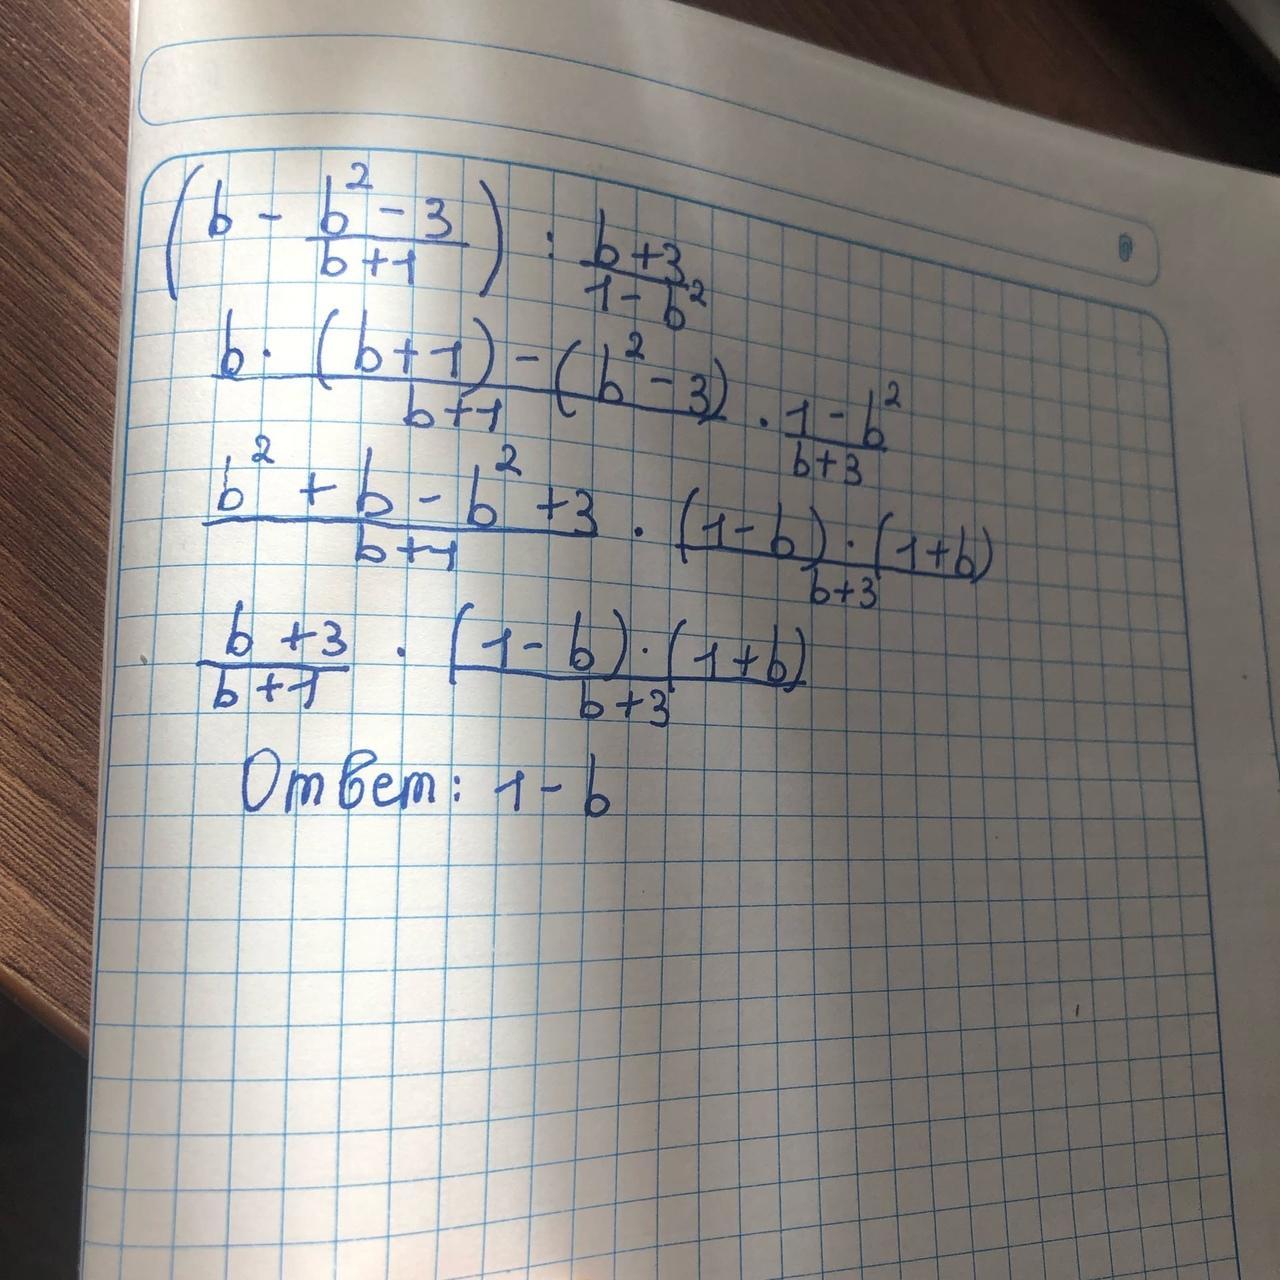 (b - (b² - 3)/(b + 1)) : (b + 3)/(1 - b²)
(b · (b + 1) - (b² - 3))/(b + 1) · (1 - b²)/(b + 3)
(b² + b - b² + 3)/(b + 1) · ((1 - b) · (1 + b))/(b + 3)
(b + 3)/(b + 1) · ((1 - b) · (1 + b))/(b + 3)
Ответ: 1 - b